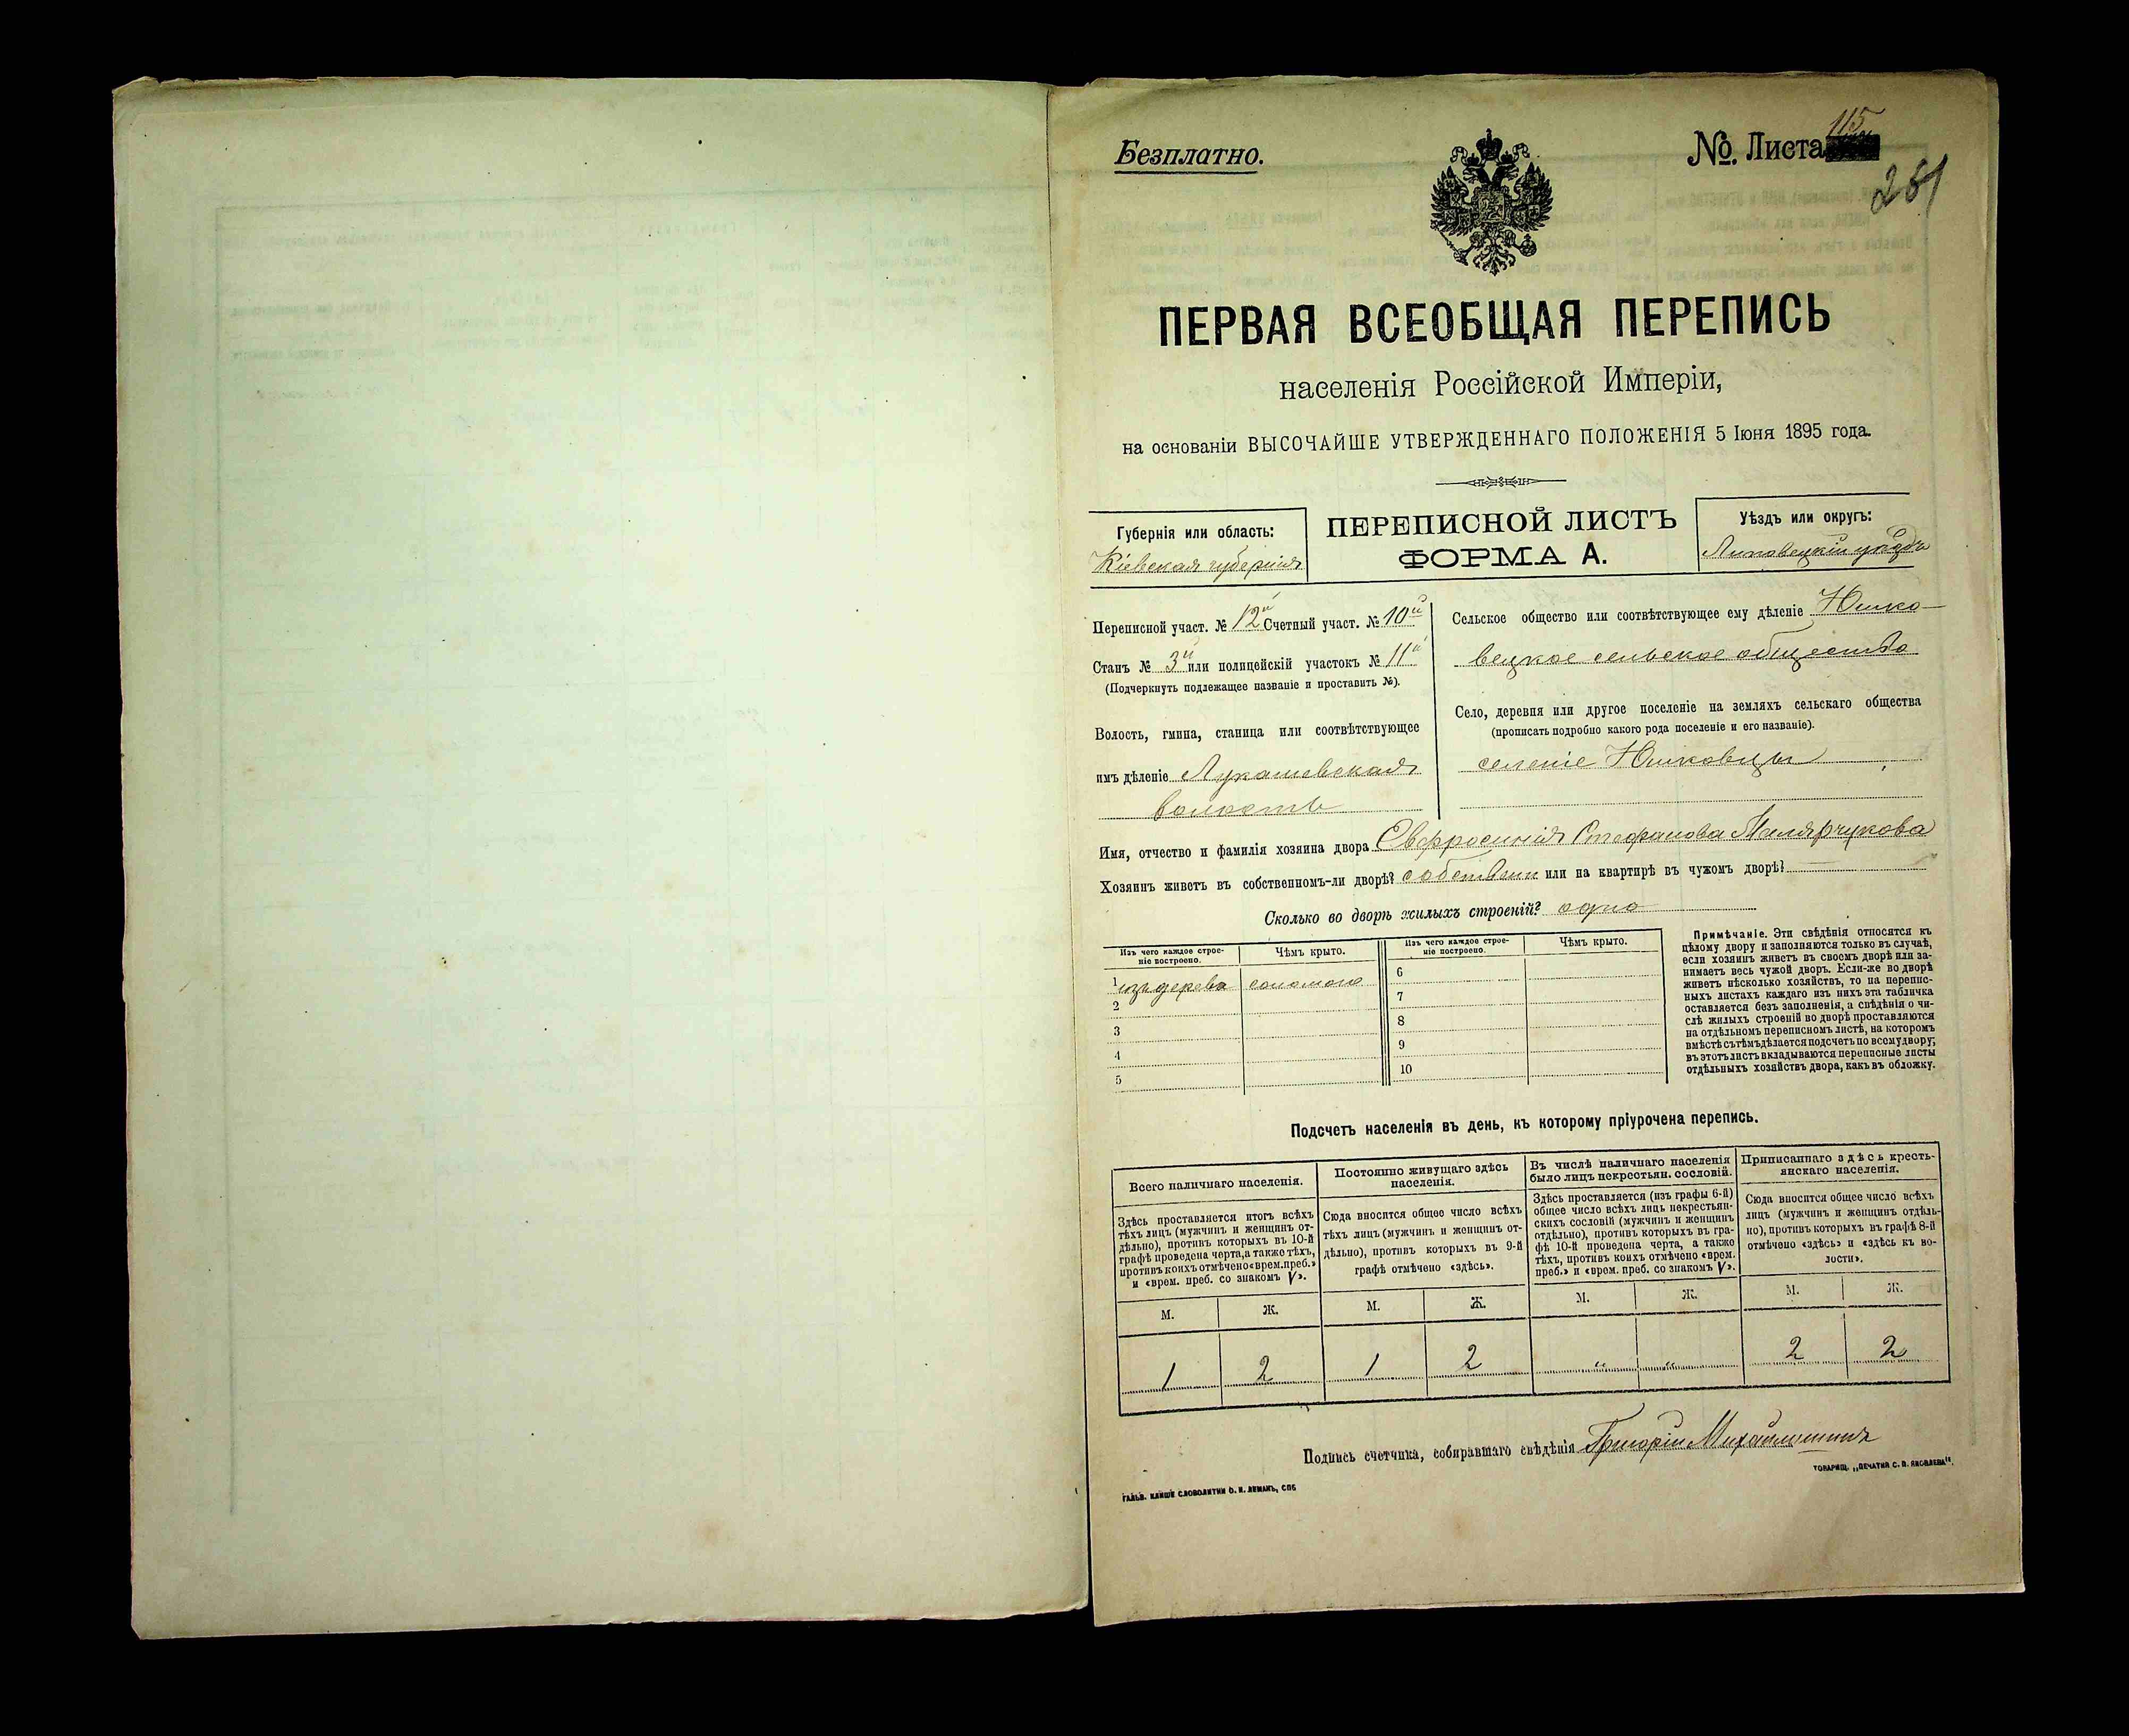 Безплатно.
№. Листа 115
251
ПЕРВАЯ ВСЕОБЩАЯ ПЕРЕПИСЬ
населенія Россійской Имперіи,
на основаніи ВЫСОЧАЙШЕ УТВЕРЖДЕННАГО ПОЛОЖЕНІЯ 5 Іюня 1895 года.
Губернія или область:
Кіевская губернія
ПЕРЕПИСНОЙ ЛИСТЪ
ФОРМА А.
Уѣздъ или округъ:
Липовецкій уѣздъ
Переписной участ. № 12й Счетный участ. № 10й
Станъ № 3й или полицейскій участокъ № 11й
(Подчеркнуть подлежащее названіе и проставить №).
Волость, гмина, станица или соотвѣтствующее
имъ дѣленіе Лукашевская
волость
Сельское общество или соотвѣтствующее ему дѣленіе Юшко-
вецкое сельское общество
Село, деревня или другое поселеніе на земляхъ сельскаго общества
(прописать подробно какого рода поселеніе и его названіе).
селеніе Юшковцы
Имя, отчество и фамилія хозяина двора Евфросинія Стефанова Малярчукова
Хозяинъ живетъ въ собственномъ-ли дворѣ? собствен или на квартирѣ въ чужомъ дворѣ?
Сколько во дворѣ жилыхъ строеній? одно
Изъ чего каждое строе-
ніе построено.
Чѣмъ крыто.
Изъ чего каждое строе-
ніе построено.
Чѣмъ крыто.
1 изъ дерева соломою
2
3
4
5
6
7
8
9
10
Примѣчаніе. Эти свѣдѣнія относятся къ
цѣлому двору и заполняются только въ случаѣ,
если хозяинъ живетъ въ своемъ дворѣ или за-
нимаетъ весь чужой дворъ. Если-же во дворѣ
живетъ нѣсколько хозяйствъ, то на перепис-
ныхъ листахъ каждаго изъ нихъ эта табличка
оставляется безъ заполненія, а свѣдѣнія о чи-
слѣ жилыхъ строеній во дворѣ проставляются
на отдѣльномъ переписномъ листѣ, на которомъ
вмѣстѣ съ тѣмъ дѣлается подсчетъ по всему двору;
въ этотъ листъ вкладываются переписные листы
отдѣльныхъ хозяйствъ двора, какъ въ обложку.
Подсчетъ населенія въ день, къ которому пріурочена перепись.
Всего наличнаго населенія.
Здѣсь проставляется итогъ всѣхъ
тѣхъ лицъ (мужчинъ и женщинъ от-
дѣльно), противъ которыхъ въ 10-й
графѣ проведена черта, а также тѣхъ,
противъ коихъ отмѣчено «врем. преб.»
и «врем. преб. со знакомъ V».
Постоянно живущаго здѣсь
населенія.
Сюда вносится общее число всѣхъ
тѣхъ лицъ (мужчинъ и женщинъ от-
дѣльно), противъ которыхъ въ 9-й
графѣ отмѣчено «здѣсь».
Въ числѣ наличнаго населенія
было лицъ некрестьян. сословій.
Здѣсь проставляется (изъ графы 6-й)
общее число всѣхъ лицъ некрестьян-
скихъ сословій (мужчинъ и женщинъ
отдѣльно), противъ которыхъ въ гра-
фѣ 10-й проведена черта, а также
тѣхъ, противъ коихъ отмѣчено «врем.
преб.» и «врем. преб. со знакомъ V».
Приписаннаго здѣсь кресть-
янскаго населенія.
Сюда вносится общее число всѣхъ
лицъ (мужчинъ и женщинъ отдѣль-
но), противъ которыхъ въ графѣ 8-й
отмѣчено «здѣсь» и «здѣсь къ во-
лости».
М. Ж. М. Ж. М. Ж. М. Ж.
1 2 1 2 " " 2 2
Подпись счетчика, собиравшаго свѣдѣнія Григорій
ГАЛЬВ. КЛИШЕ СЛОВОЛИТНИ О. И. ЛЕМАНЪ, СПБ
ТОВАРИЩ. „ПЕЧАТНЯ С. П. ЯКОВЛЕВА".